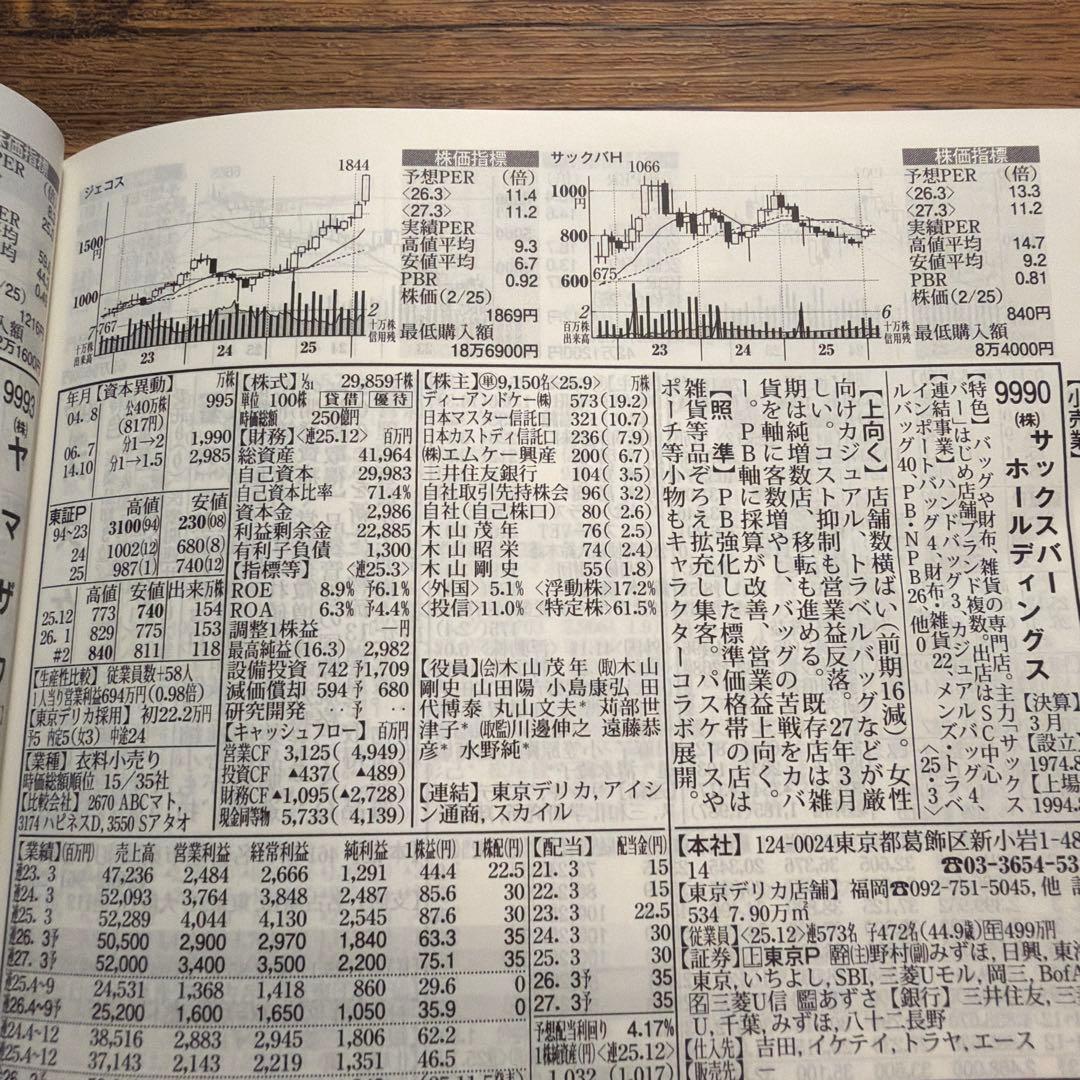 ジェコス
1844
1500
円
1000
767
7
十万株
出来高
2
十万株
信用残
23
24
25
株価指標
予想PER (倍)
〈26.3〉 11.4
〈27.3〉 11.2
実績PER
高値平均 9.3
安値平均 6.7
PBR 0.92
株価(2/25)
1869円
最低購入額
18万6900円
サックバH
1066
1000
円
800
600
675
2
百万株
出来高
6
十万株
信用残
23
24
25
株価指標
予想PER (倍)
〈26.3〉 13.3
〈27.3〉 11.2
実績PER
高値平均 14.7
安値平均 9.2
PBR 0.81
株価(2/25)
840円
最低購入額
8万4000円
9990
㈱サックスバー
ホールディングス
【決算】
3月
【設立】
1974.8
【上場】
1994.3
【特色】バッグや財布、雑貨の専門店。主力「サックス
バー」はじめ店舗ブランド複数。出店はSC中心
【連結事業】ハンドバッグ3、カジュアルバッグ4、
インポートバッグ4、財布・雑貨22、メンズ・トラベ
ルバッグ40、PB・NPB26、他0 〈25・3〉
【上向く】店舗数横ばい(前期16減)。女性
向けカジュアル、トラベルバッグなどが厳
しい。コスト抑制も営業益反落。27年3月
期は純増数店、移転も進める。既存店は雑
貨を軸に客数増やし、バッグの苦戦をカバ
ー。PB軸に採算が改善、営業益上向く。
【照準】PB強化した標準価格帯の店は
雑貨等品ぞろえ拡充し集客。パスケースや
ポーチ等小物もキャラクターコラボ展開。
年月【資本異動】 万株
04. 8 公40万株 995
(817円)
06. 7 分1→2 1,990
14.10 分1→1.5 2,985
東証P 高値 安値
94~23 3100(94) 230(08)
24 1002(12) 680(8)
25 987(1) 740(12)
高値 安値 出来万株
25.12 773 740 154
26. 1 829 775 153
#2 840 811 118
【生産性比較】従業員数+58人
1人当り営業利益694万円(0.98倍)
【東京デリカ採用】初22.2万円
予5 内定5(女3) 中途24
【業種】衣料小売り
時価総額順位 15/35社
【比較会社】2670 ABCマト,
3174 ハピネスD, 3550 Sアタオ
【株式】1/31 29,859千株
単位 100株 貸借 優待
時価総額 250億円
【財務】〈連25.12〉 百万円
総資産 41,964
自己資本 29,983
自己資本比率 71.4%
資本金 2,986
利益剰余金 22,885
有利子負債 1,300
【指標等】 〈連25.3〉
ROE 8.9% 予6.1%
ROA 6.3% 予4.4%
調整1株益 ―円
最高純益(16.3) 2,982
設備投資 742 予1,709
減価償却 594 予 680
研究開発 ‥ 予 ‥
【キャッシュフロー】 百万円
営業CF 3,125( 4,949)
投資CF ▲437( ▲489)
財務CF ▲1,095(▲2,728)
現金同等物 5,733( 4,139)
【株主】㊥9,150名〈25.9〉 万株
ディーアンドケー㈱ 573(19.2)
日本マスター信託口 321(10.7)
日本カストディ信託口 236( 7.9)
㈱エムケー興産 200( 6.7)
三井住友銀行 104( 3.5)
自社取引先持株会 96( 3.2)
自社(自己株口) 80( 2.6)
木山茂年 76( 2.5)
木山昭栄 74( 2.4)
木山剛史 55( 1.8)
〈外国〉 5.1% 〈浮動株〉17.2%
〈投信〉11.0% 〈特定株〉61.5%
【役員】(会)木山茂年 (取)木山
剛史 山田陽 小島康弘 田
代博泰 丸山文夫* 苅部世
津子* (取監)川邊伸之 遠藤恭
彦* 水野純*
【連結】東京デリカ, アイシ
ン通商, スカイル
【業績】(百万円) 売上高 営業利益 経常利益 純利益 1株益(円) 1株配(円)
連23. 3 47,236 2,484 2,666 1,291 44.4 22.5
連24. 3 52,093 3,764 3,848 2,487 85.6 30
連25. 3 52,289 4,044 4,130 2,545 87.6 30
連26. 3予 50,500 2,900 2,970 1,840 63.3 35
連27. 3予 52,000 3,400 3,500 2,200 75.1 35
連25.4~9 24,531 1,368 1,418 860 29.6 0
連26.4~9予 25,200 1,600 1,650 1,050 35.9 0
連24.4~12 38,516 2,883 2,945 1,806 62.2
連25.4~12 37,143 2,143 2,219 1,351 46.5
【配当】 配当金(円)
21. 3 15
22. 3 15
23. 3 22.5
24. 3 30
25. 3 30
26. 3予 35
27. 3予 35
予想配当利回り 4.17%
1株純資産(円)〈連25.12〉
1,032 (1,017)
【本社】124-0024東京都葛飾区新小岩1-48
-14 ☎03-3654-53
【東京デリカ店舗】福岡☎092-751-5045, 他
534 7.90万㎡
【従業員】〈25.12〉連573名 子472名(44.9歳)年499万円
【証券】上東京P 幹(主)野村(副)みずほ, 日興, 東海
東京, いちよし, SBI, 三菱Uモル, 岡三, BofA
名三菱U信 監あずさ【銀行】三井住友, 三
U, 千葉, みずほ, 八十二長野
【仕入先】吉田, イケテイ, トラヤ, エース
【販売先】―
9993
㈱
ヤマザワ